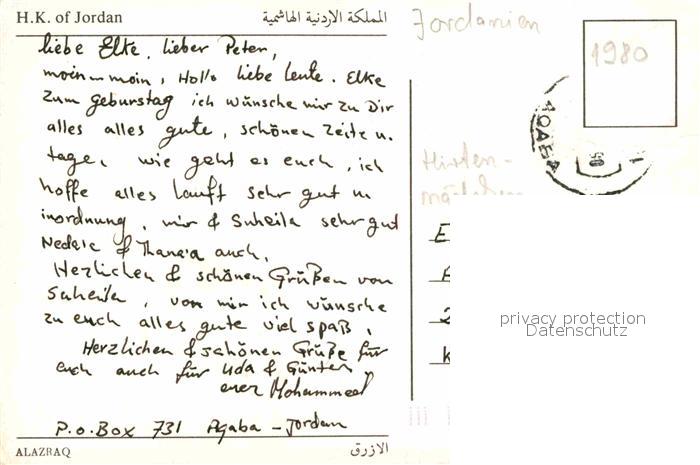 H.K. of Jordan
المملكة الاردنية الهاشمية
liebe Elke, lieber Peter,
moin-moin, Hallo liebe leute. Elke
zum geburstag ich wünsche mir zu Dir
alles alles gute, schönen Zeite u.
tage, wie geht es euch, ich
hoffe alles läuft sehr gut
inordnung, mir & Suheila sehr gut
& Thana'a auch.
Herzlichen & schönen Grüßen von
Suheila, von mir ich wünsche
zu euch alles gute viel spaß,
Herzlichen & schönen Grüße für
euch auch für Uda & Günter
euer Mohammeed
P.o.Box 731 Aqaba - Jordan
ALAZRAQ
الازرق
Jordanien
1980
AQABA
Hirten-
mädchen
E
2
K
privacy protection
Datenschutz